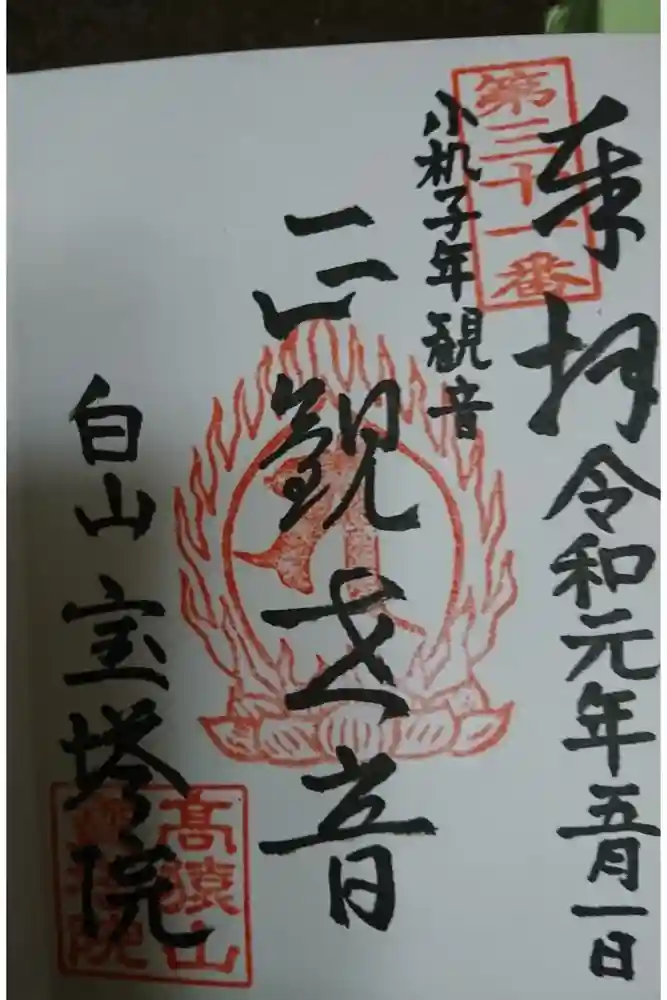 奉拝 令和元年五月一日
第三十一番
小机子年観音
観世音
白山 宝塔院
髙猿山
寶塔院